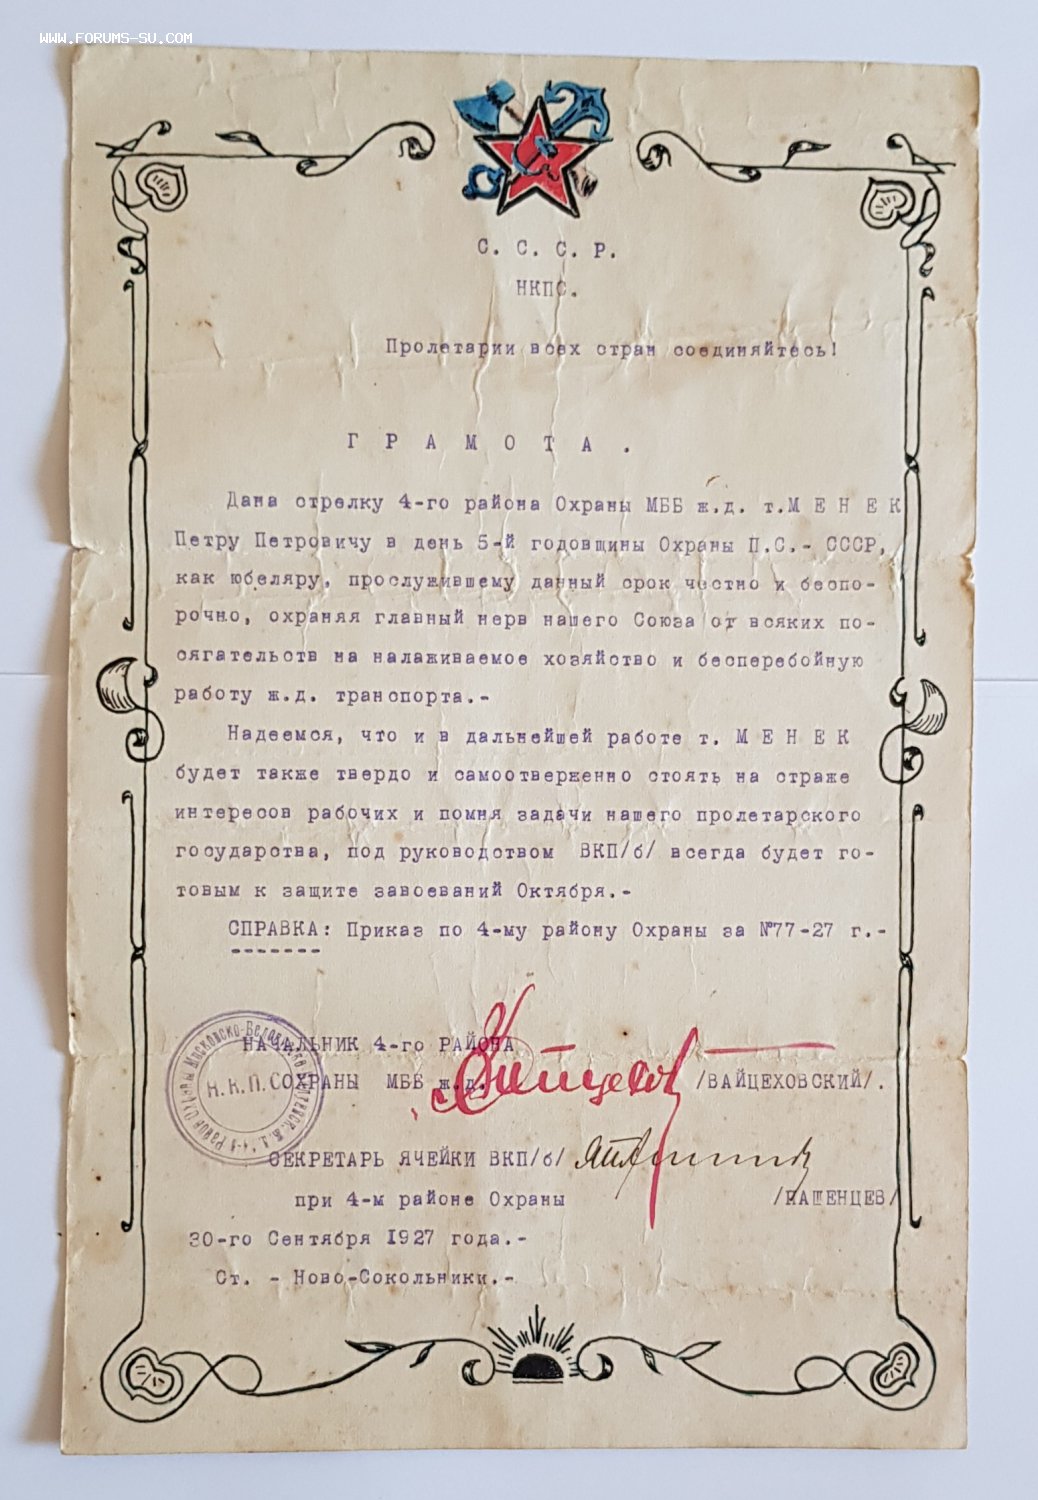 WWW.FORUMS-SU.COM
С. С. С. Р.
НКПС.
Пролетарии всех стран соединяйтесь!
Г Р А М О Т А .
Дана стрелку 4-го района Охраны МББ ж.д. т.М Е Н Е К
Петру Петровичу в день 5-й годовщины Охраны П.С.- СССР,
как юбеляру, прослужившему данный срок честно и беспо-
рочно, охраняя главный нерв нашего Союза от всяких по-
сягательств на налаживаемое хозяйство и бесперебойную
работу ж.д. транспорта.-
Надеемся, что и в дальнейшей работе т. М Е Н Е К
будет также твердо и самоотверженно стоять на страже
интересов рабочих и помня задачи нашего пролетарского
государства, под руководством ВКП/б/ всегда будет го-
товым к защите завоеваний Октября.-
СПРАВКА: Приказ по 4-му району Охраны за №77-27 г.-
НАЧАЛЬНИК 4-го РАЙОНА
ОХРАНЫ МББ ж.д. /ВАЙЦЕХОВСКИЙ/.
Н.К.П.С.
4-й Район Охраны Московско-
СЕКРЕТАРЬ ЯЧЕЙКИ ВКП/б/
при 4-м районе Охраны /ПАШЕНЦЕВ/
30-го Сентября 1927 года.-
Ст. - Ново-Сокольники.-